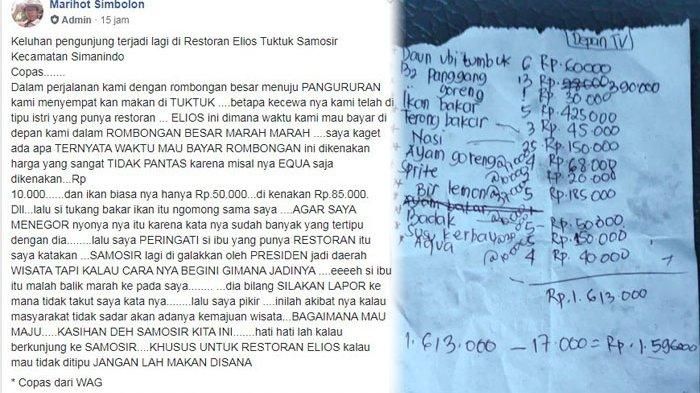 Marihot Simbolon
Admin · 15 jam
Keluhan pengunjung terjadi lagi di Restoran Elios Tuktuk Samosir
Kecamatan Simanindo
Copas.......
Dalam perjalanan kami dengan rombongan besar menuju PANGURURAN
kami menyempat kan makan di TUKTUK ....betapa kecewa nya kami telah di
tipu istri yang punya restoran ... ELIOS ini dimana waktu kami mau bayar di
depan kami dalam ROMBONGAN BESAR MARAH MARAH ....saya kaget
ada apa TERNYATA WAKTU MAU BAYAR ROMBONGAN ini dikenakan
harga yang sangat TIDAK PANTAS karena misal nya EQUA saja
dikenakan...Rp
10.000......dan ikan biasa nya hanya Rp.50,000...di kenakan Rp.85.000.
Dll...lalu si tukang bakar ikan itu ngomong sama saya ....AGAR SAYA
MENEGOR nyonya nya itu karena kata nya sudah banyak yang tertipu
dengan dia........lalu saya PERINGATI si ibu yang punya RESTORAN itu
saya katakan ...SAMOSIR lagi di galakkan oleh PRESIDEN jadi daerah
WISATA TAPI KALAU CARA NYA BEGINI GIMANA JADINYA ....eeeeh si ibu
itu malah balik marah ke pada saya........ ...dia bilang SILAKAN LAPOR ke
mana tidak takut saya kata nya.......lalu saya pikir ....inilah akibat nya kalau
masyarakat tidak sadar akan adanya kemajuan wisata...BAGAIMANA MAU
MAJU.....KASIHAN DEH SAMOSIR KITA INI.......hati hati lah kalau
berkunjung ke SAMOSIR....KHUSUS UNTUK RESTORAN ELIOS kalau
mau tidak ditipu JANGAN LAH MAKAN DISANA
* Copas dari WAG
Depan TV
Daun ubi tumbuk 6 Rp.60000
B2 Panggang 13 Rp. 390000
goreng 1 Rp 30 000
Ikan bakar 5 Rp. 425000
Terong bakar 3 Rp. 45 000
Nasi 25 Rp. 150.000
Ayam goreng 4 Rp. 68.000
Sprite Rp. 20.000
Bir lemon 5 Rp. 185 000
Badak 5 Rp. 50000
Susu kerbau 5 Rp.
Aqua 4 Rp. 40 000
Rp.1. 613 000
1.613.000 - 17.000 = Rp. 1.596000